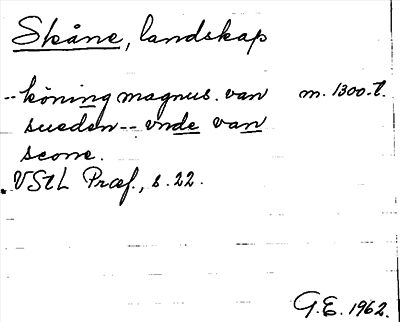 Skåne, landskap
-- köning magnus. van m. 1300-t.
sueden -- vnde van
scone.
VStL Præf., s. 22.
G.E. 1962.